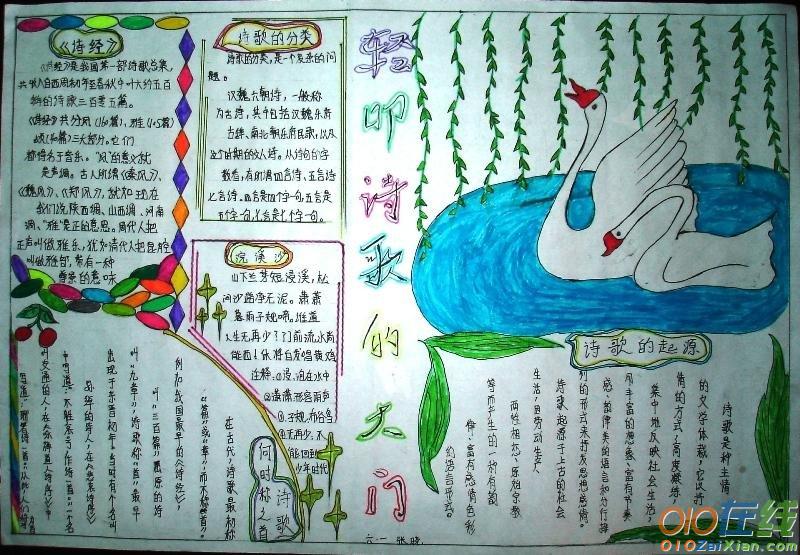 《诗经》
《诗经》是我国第一部诗歌总集,
共收入自西周初年至春秋中叶大约五百
多年的诗歌三百零五篇。
《诗经》共分风(160篇)、雅(105篇)
颂(40篇)三大部分。它们
都得名于音乐。"风"的意义就
是声调。古人所谓《秦风》、
《魏风》、《郑风》,就如现在
我们说陕西调、山西调、河南
调。"雅"是正的意思。周代人把
正声叫做雅乐,犹如清代人把昆腔
叫做雅部,带有一种
尊崇的意味
诗歌的分类
诗歌的分类,是一个复杂的问
题。
汉魏六朝诗,一般称
为古诗,其中包括汉魏乐府
古辞、南北朝乐府民歌,以及
这个时期的文人诗。从诗句的字
数看,有所谓四言诗、五言诗
七言诗。四言是四个字一句,五言是
五字一句,七言是七个字一句。
浣溪沙
山下兰芽短浸溪,松
间沙路净无泥。萧萧
暮雨子规啼。谁道
人生无再少?门前流水尚
能西!休将白发唱黄鸡
注释:①浸:泡在水中
②潇潇:形容雨声
③子规:布谷鸟
④无再少:不
能回到
少年时代
轻叩诗歌的大门
诗歌的起源
诗歌是种主情
的文学体裁,它以抒
情的方式,高度凝练、
集中地反映社会生活,
用丰富的想象、富有节奏
感、韵律美的语言和分行排
列的形式来抒发思想感情。
诗歌起源于上古的社会
生活,因劳动生产、
两性相恋、原始宗教
等而产生的一种有韵
律、富有感情色彩
的语言形式。
诗歌
何时称之"首"
在古代,诗歌最初称
"篇"或"章",而不称"首"。
例如我国最早的《诗经》,
叫"三百篇",屈原的诗
叫"九章",诗歌称"首"最早
出现于东晋初年,当时有个名叫
孙绰的诗人,在《悲哀诗序》
中写道:"不胜哀号,作诗一首"。
六.一 张晓
010在线
010ZaiXian.com